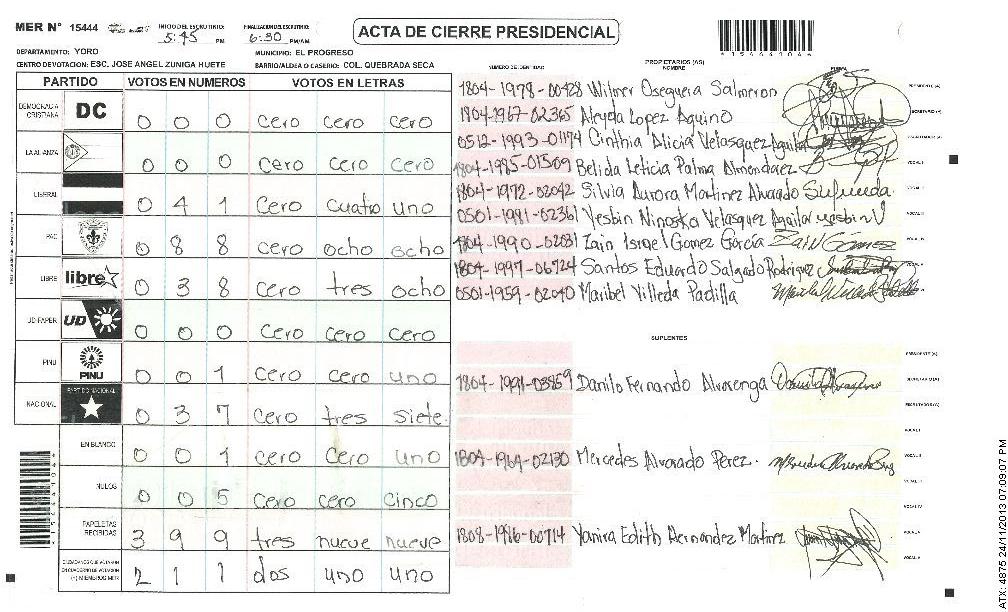 MER N° 15444 INICIO DEL ESCRUTINIO: 5:45 PM FINALIZACION DEL ESCRUTINIO: 6:30 PM/AM
ACTA DE CIERRE PRESIDENCIAL
DEPARTAMENTO: YORO MUNICIPIO: EL PROGRESO
CENTRO DE VOTACION: ESC. JOSE ANGEL ZUNIGA HUETE BARRIO/ALDEA O CASERIO: COL. QUEBRADA SECA
PARTIDO VOTOS EN NUMEROS VOTOS EN LETRAS
DEMOCRACIA CRISTIANA DC 0 0 0 cero cero cero
LA ALIANZA 0 0 0 cero cero cero
LIBERAL 0 4 1 cero cuatro uno
PAC 0 8 8 cero ocho ocho
LIBRE libre 0 3 8 cero tres ocho
UD-FAPER UD 0 0 0 cero cero cero
PINU PINU 0 0 1 cero cero uno
NACIONAL PARTIDO NACIONAL 0 3 7 cero tres siete.
EN BLANCO 0 0 1 cero cero uno
NULOS 0 0 5 cero cero cinco
PAPELETAS RECIBIDAS 3 9 9 tres nueve nueve
CIUDADANOS QUE VOTARON EN CUADERNO DE VOTACION (+) MIEMBROS MER 2 1 1 dos uno uno
PROPIETARIOS (AS)
NUMERO DE IDENTIDAD NOMBRE FIRMA
1804-1978-00428 Wilmer Oseguera Salmeron PRESIDENTE (A)
1804-1967-02365 Aleyda Lopez Aquino SECRETARIO (A)
0512-1993-01174 Cinthia Alicia Velasquez Aguilar ESCRUTADOR (A)
1804-1985-01509 Belida Leticia Palma Almendarez VOCAL I
1804-1972-02042 Silvia Aurora Martinez Alvarado VOCAL II
0501-1981-02361 Yesbin Ninoska Velasquez Aguilar yesbin V VOCAL III
1804-1990-02031 Zain Israel Gomez García Zain Gómez VOCAL IV
1804-1997-06724 Santos Eduardo Salgado Rodriguez VOCAL V
0501-1959-02040 Maribel Villeda Padilla VOCAL VI
SUPLENTES
PRESIDENTE (A)
1804-1991-03859 Danilo Fernando Alvarenga SECRETARIO (A)
ESCRUTADOR (A)
VOCAL I
1804-1964-02130 Mercedes Alvarado Perez. VOCAL II
VOCAL III
VOCAL IV
1808-1986-00714 Yanira Edith Hernandez Martinez VOCAL V
VOCAL VI
ATX: 4875 24/11/2013 07:09:07 PM